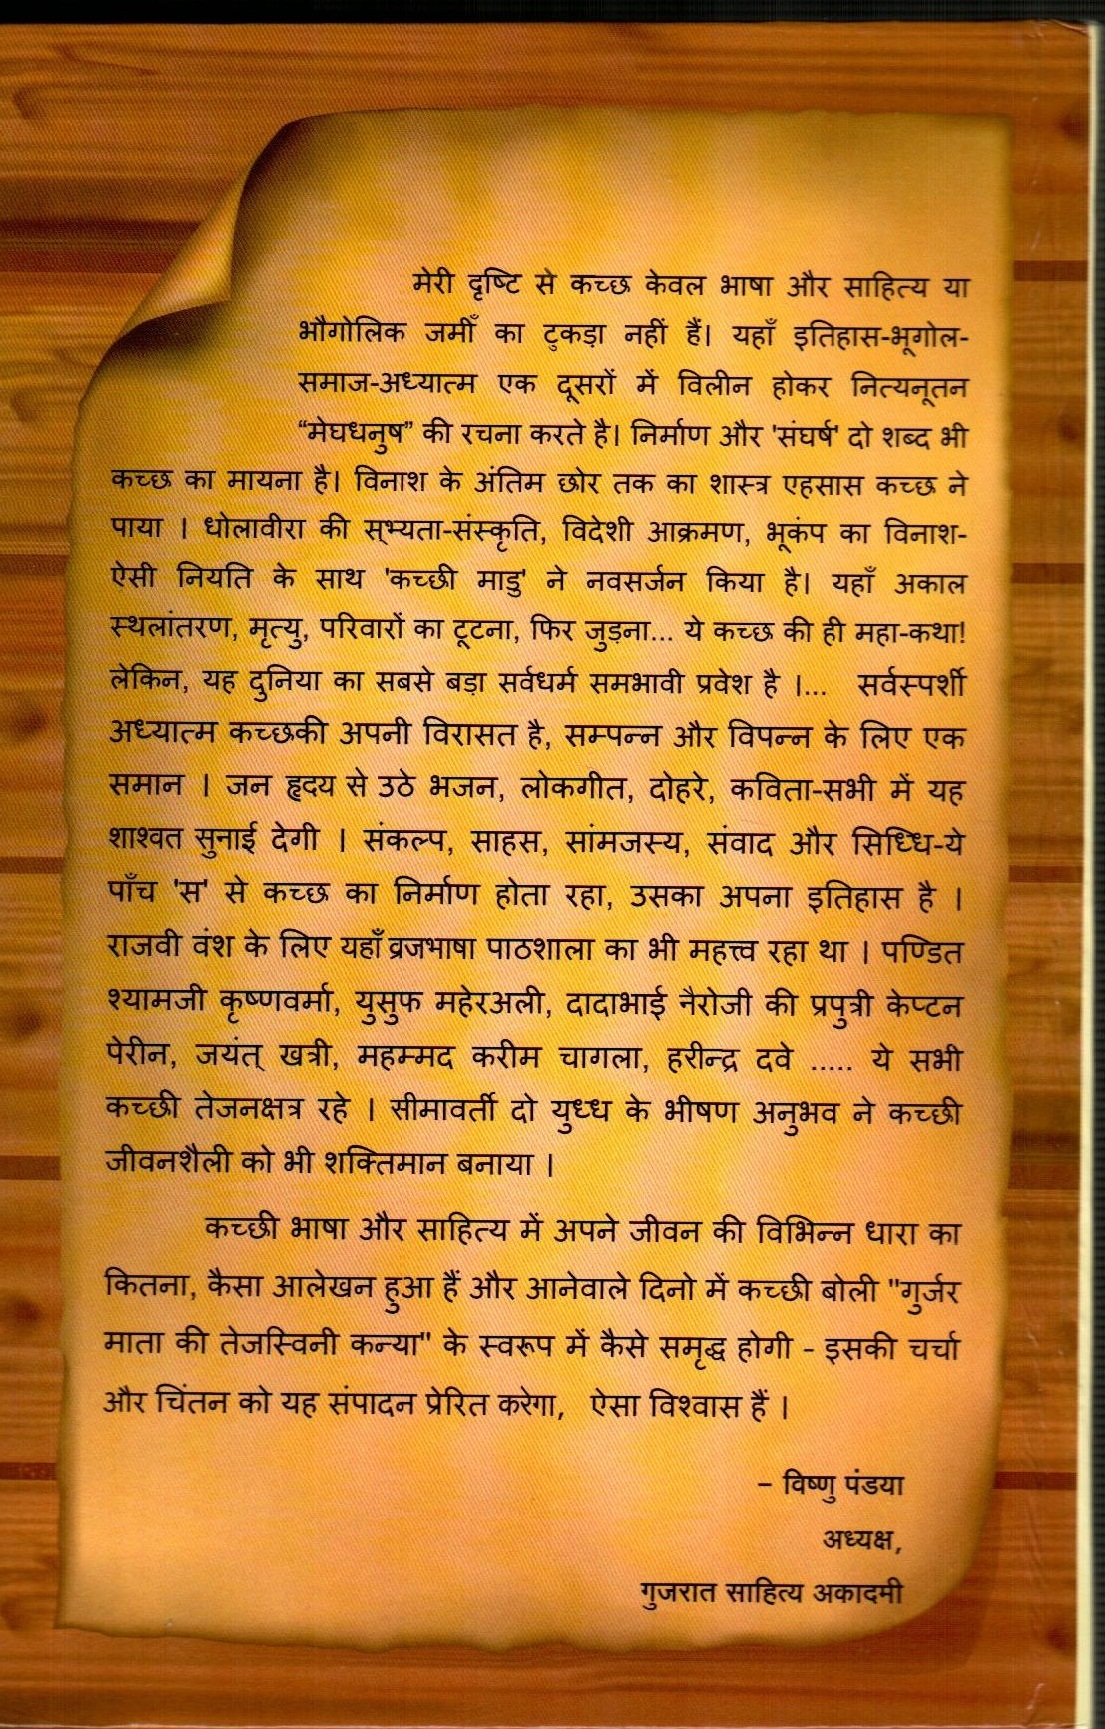 मेरी दृष्टि से कच्छ केवल भाषा और साहित्य या
भौगोलिक जमीँ का टुकड़ा नहीं हैं। यहाँ इतिहास-भूगोल-
समाज-अध्यात्म एक दूसरों में विलीन होकर नित्यनूतन
“मेघधनुष” की रचना करते है। निर्माण और 'संघर्ष' दो शब्द भी
कच्छ का मायना है। विनाश के अंतिम छोर तक का शास्त्र एहसास कच्छ ने
पाया । धोलावीरा की स्भ्यता-संस्कृति, विदेशी आक्रमण, भूकंप का विनाश-
ऐसी नियति के साथ 'कच्छी माडु' ने नवसर्जन किया है। यहाँ अकाल
स्थलांतरण, मृत्यु, परिवारों का टूटना, फिर जुड़ना... ये कच्छ की ही महा-कथा!
लेकिन, यह दुनिया का सबसे बड़ा सर्वधर्म समभावी प्रवेश है ।... सर्वस्पर्शी
अध्यात्म कच्छकी अपनी विरासत है, सम्पन्न और विपन्न के लिए एक
समान । जन हृदय से उठे भजन, लोकगीत, दोहरे, कविता-सभी में यह
शाश्वत सुनाई देगी । संकल्प, साहस, सांमजस्य, संवाद और सिध्धि-ये
पाँच 'स' से कच्छ का निर्माण होता रहा, उसका अपना इतिहास है ।
राजवी वंश के लिए यहाँ व्रजभाषा पाठशाला का भी महत्त्व रहा था । पण्डित
श्यामजी कृष्णवर्मा, युसुफ महेरअली, दादाभाई नैरोजी की प्रपुत्री केप्टन
पेरीन, जयंत् खत्री, महम्मद करीम चागला, हरीन्द्र दवे ..... ये सभी
कच्छी तेजनक्षत्र रहे । सीमावर्ती दो युध्ध के भीषण अनुभव ने कच्छी
जीवनशैली को भी शक्तिमान बनाया ।
कच्छी भाषा और साहित्य में अपने जीवन की विभिन्न धारा का
कितना, कैसा आलेखन हुआ हैं और आनेवाले दिनो में कच्छी बोली "गुर्जर
माता की तेजस्विनी कन्या" के स्वरूप में कैसे समृद्ध होगी - इसकी चर्चा
और चिंतन को यह संपादन प्रेरित करेगा, ऐसा विश्वास हैं ।
– विष्णु पंडया
अध्यक्ष,
गुजरात साहित्य अकादमी